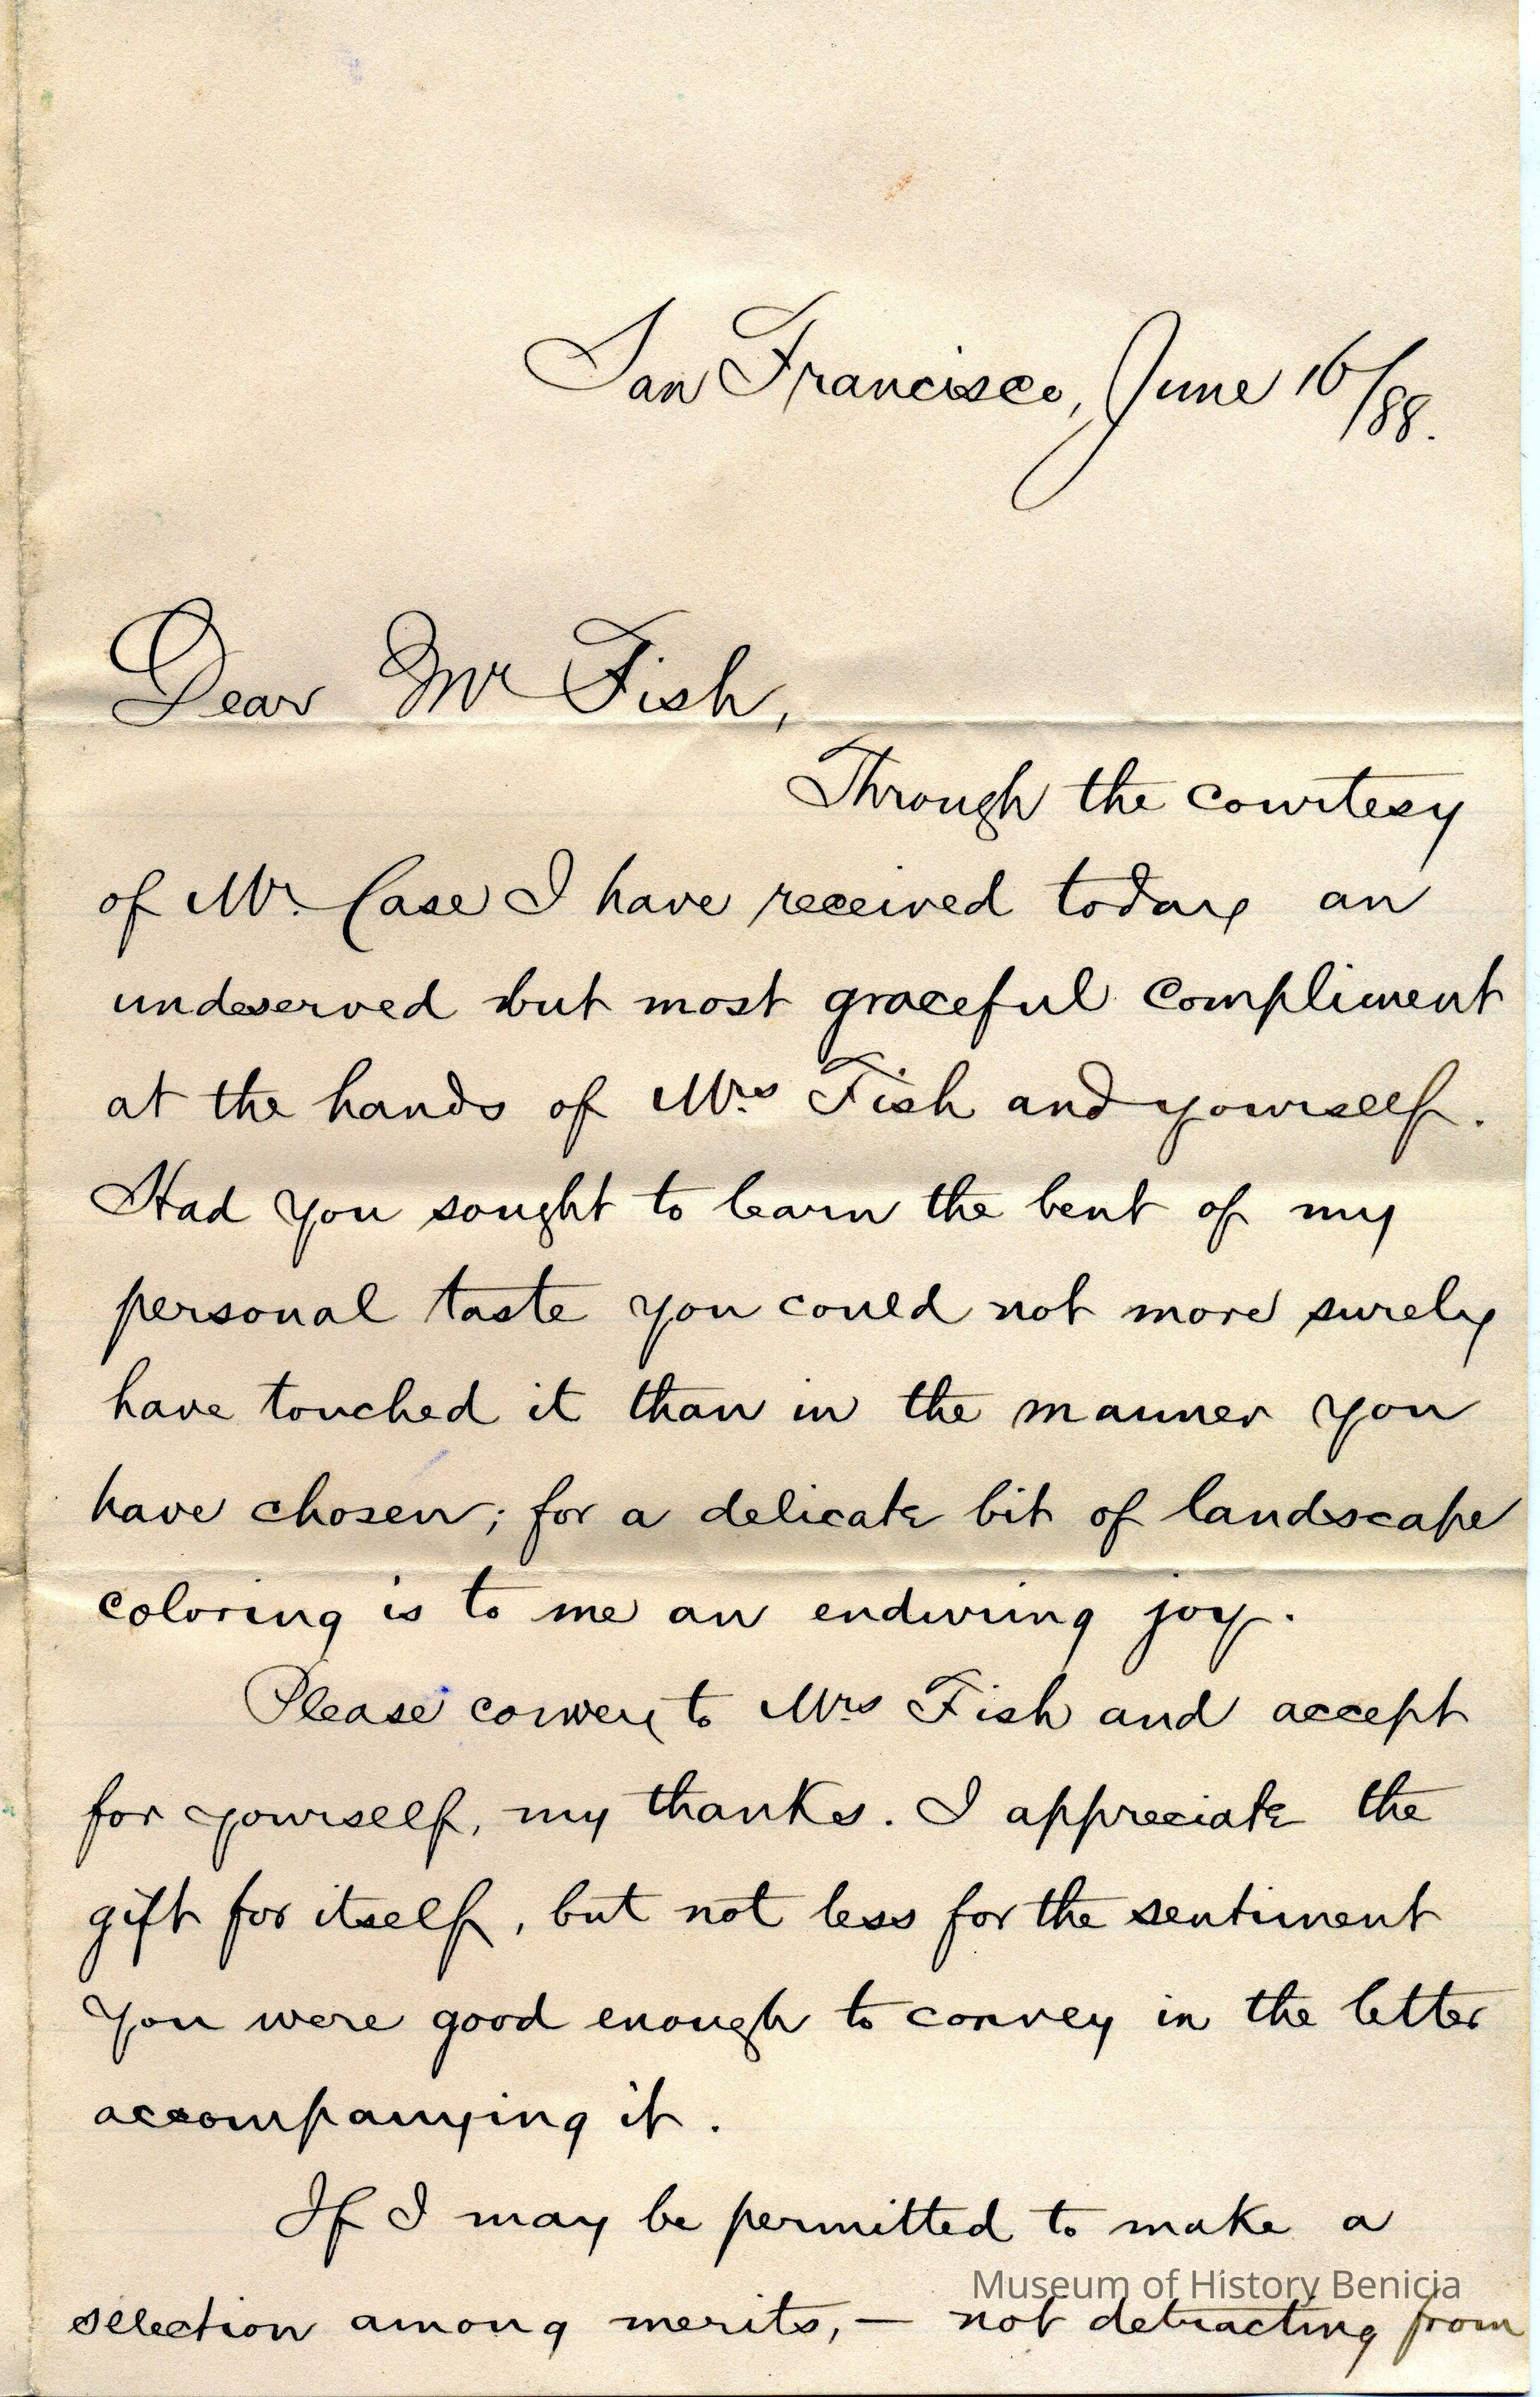 San Francisco, June 16/88.
Dear Mr Fish,
Through the courtesy
of Mr. Case I have received today an
undeserved but most graceful compliment
at the hands of Mrs Fish and yourself.
Had you sought to learn the bent of my
personal taste you could not more surely
have touched it than in the manner you
have chosen; for a delicate bit of landscape
coloring is to me an enduring joy.
Please convey to Mrs Fish and accept
for yourself, my thanks. I appreciate the
gift for itself, but not less for the sentiment
you were good enough to convey in the letter
accompanying it.
If I may be permitted to make a
Museum of History Benicia
selection among merits, — not detracting from